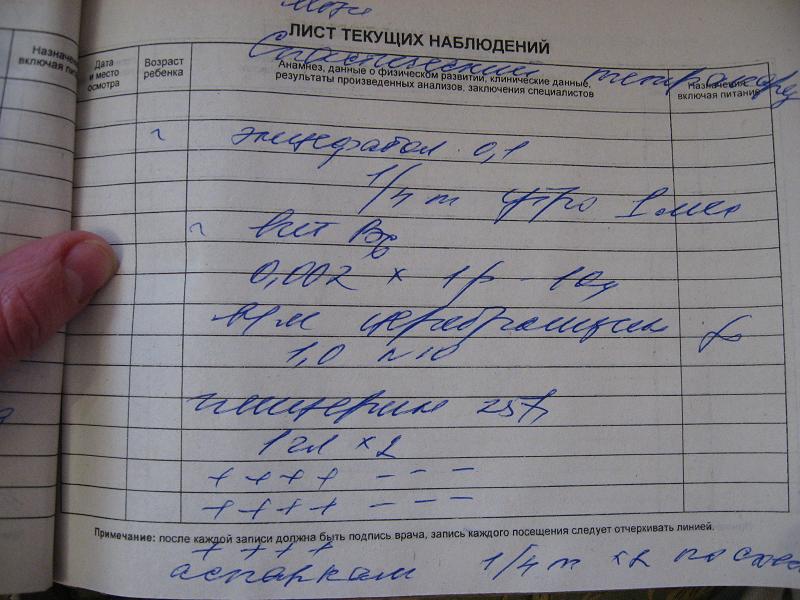 ЛИСТ ТЕКУЩИХ НАБЛЮДЕНИЙ
Спастический тетрапарез
Назначения включая питание
Дата и место осмотра
Возраст ребенка
Анамнез, данные о физическом развитии, клинические данные,
результаты произведенных анализов, заключения специалистов
Назначения, включая питание
энцефабол 0,1
1/4 т утро 1 мес
вит В6
0,002 х 1р - 10д
в/м церебролизин
1,0 N10
25%
1 чл х 2
++++ ---
++++ ---
Примечание: после каждой записи должна быть подпись врача, запись каждого посещения следует отчеркивать линией.
++++
аспаркам 1/4 т х2 по схеме